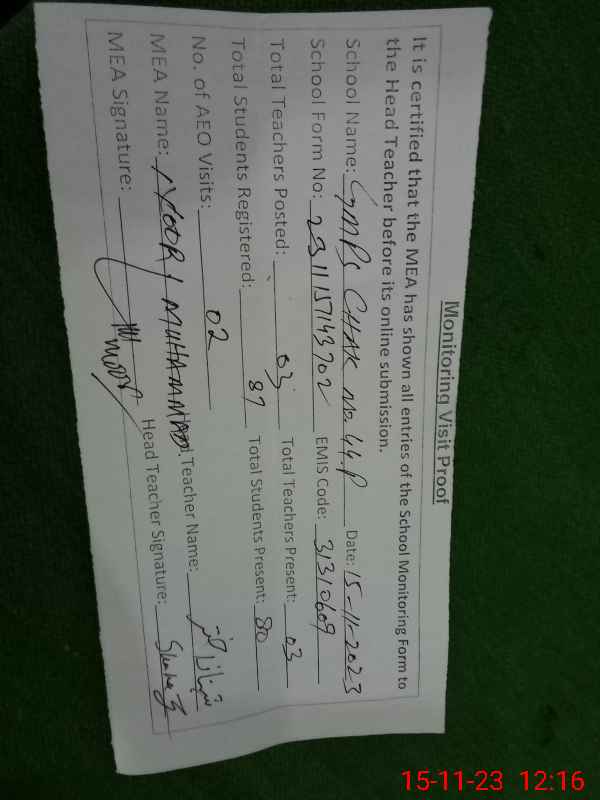 Monitoring Visit Proof
It is certified that the MEA has shown all entries of the School Monitoring Form to
the Head Teacher before its online submission.
School Name: GMPS CHAK no. 44.P Date: 15-11-2023
School Form No: 231115143702 EMIS Code: 31310609
Total Teachers Posted: 03 Total Teachers Present: 03
Total Students Registered: 87 Total Students Present: 80
No. of AEO Visits: 02
MEA Name: MUHAMMAD Teacher Name: شہناز اختر
MEA Signature: Head Teacher Signature:
15-11-23 12:16